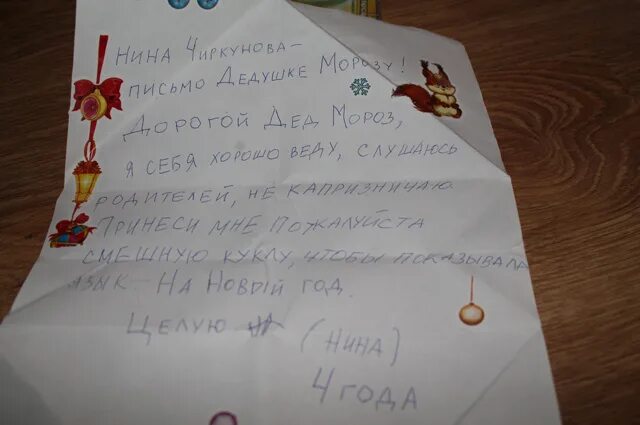 Нина Чиркунова –
письмо Дедушке Морозу!
Дорогой Дед Мороз,
я себя хорошо веду, слушаюсь
родителей, не капризничаю.
Принеси мне пожалуйста
смешную куклу, чтобы показывала
язык На Новый год.
Целую
(Нина)
4 года